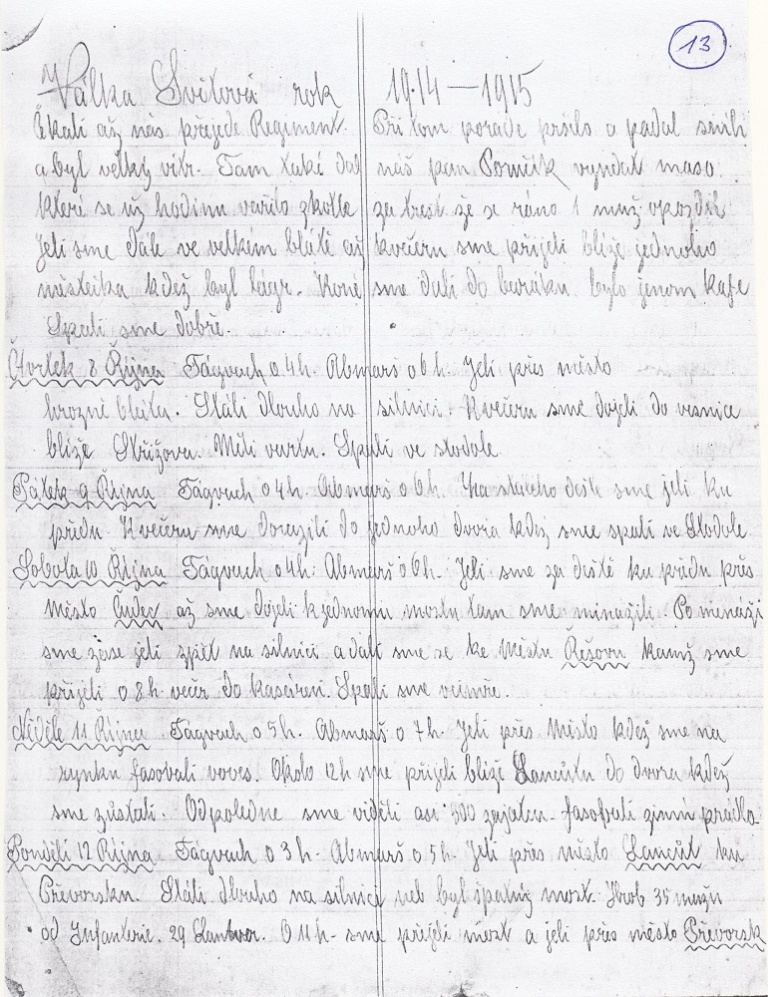 13
Válka Světová rok 1914 – 1915
Čkali až nás přijede Regiment. Při tom pořade pršilo a padal sníh
a byl velký vítr. Tam také dal náš pan Poručík vyndat maso
které se už hodinu vařilo z kotle za trest že se ráno 1 muž opozdil
Jeli sme dále ve velkém blátě až kvečeru sme přijeli blíže jednoho
městečka kdež byl lágr. Koně sme dali do baráku bylo jenom kafe
Spali sme dobře.
Čtvrtek 8 Října Tágvach o 4h. Abmarš o 6h. Jeli přes město
hrozné bláto. Stáli dlouho na silnici. Kvečeru sme dojeli do vesnice
blíže Střižova. Měli vartu. Spali ve stodole
Pátek 9 Října Tágvach o 4h. Abmarš o 6h. Za stálého deště sme jeli ku
předu. Kvečeru sme dorazili do jednoho dvora kdež sme spali ve Stodole
Sobota 10 Října Tágvach o 4h. Abmarš o 6h. Jeli sme za deště ku předu přes
Město Čudec až sme dojeli k jednomu mostu tam sme minažili. Po menáži
sme zase jeli zpět na silnici a dali sme se ke Městu Řešovu kamž sme
přijeli o 8h večír do kasáren. Spali sme v cimře.
Neděle 11 Října Tágvach o 5h. Abmarš o 7h. Jeli přes Město kdež sme na
rynku fasovali voves. Okolo 12h sme přijeli blíže Lancůtu do dvora kdež
sme zůstali. Odpoledne sme viděli asi 300 zajatců. fasovali zimní prádlo
Pondělí 12 Října Tágvach o 3h. Abmarš o 5h. Jeli přes město Lancůt ku
Převorsku. Stáli dlouho na silnici neb byl špatný most. Hrob 35 mužů
od Infanterie. 29 Lantver. O 11h. sme přejeli most a jeli přes město Převorsk